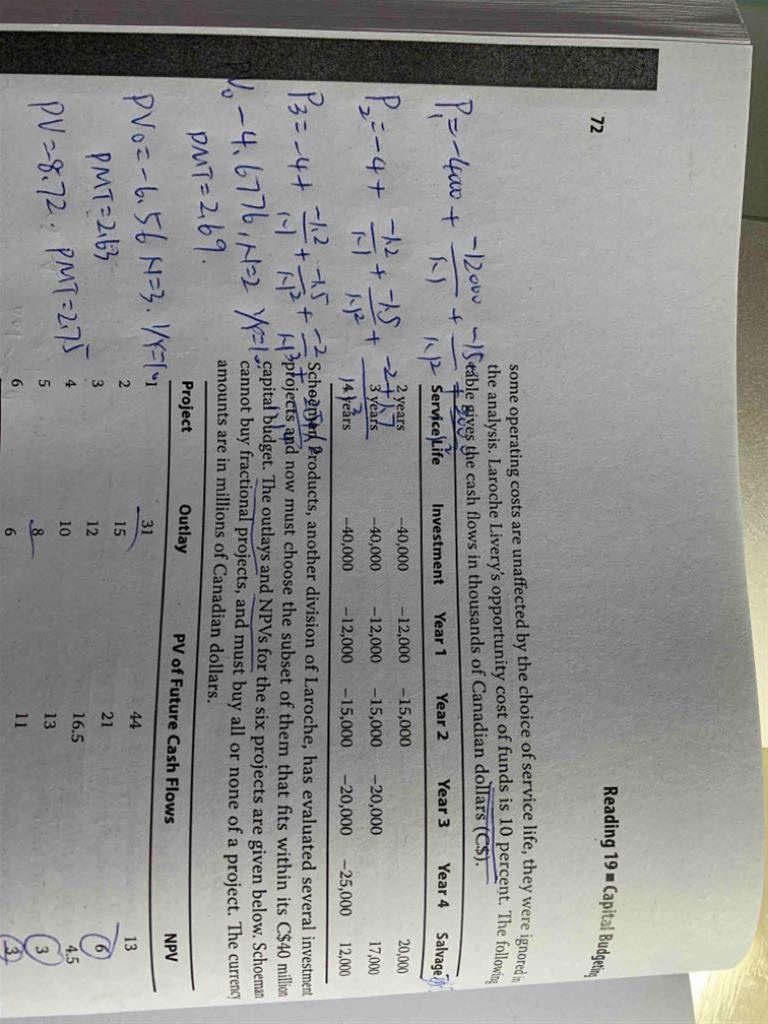 72
Reading 19 ■ Capital Budgeting
some operating costs are unaffected by the choice of service life, they were ignored in
the analysis. Laroche Livery's opportunity cost of funds is 10 percent. The following
table gives the cash flows in thousands of Canadian dollars (C$).
Service Life Investment Year 1 Year 2 Year 3 Year 4 Salvage
2 years −40,000 −12,000 −15,000 20,000
3 years −40,000 −12,000 −15,000 −20,000 17,000
4 years −40,000 −12,000 −15,000 −20,000 −25,000 12,000
Schoeman Products, another division of Laroche, has evaluated several investment
projects and now must choose the subset of them that fits within its C$40 million
capital budget. The outlays and NPVs for the six projects are given below. Schoeman
cannot buy fractional projects, and must buy all or none of a project. The currency
amounts are in millions of Canadian dollars.
Project Outlay PV of Future Cash Flows NPV
1 31 44 13
2 15 21 6
3 12 16.5 4.5
4 10 13 3
5 8 11 3
6 6
PV0 -4.6776, N=2
PMT=2.69.
PV0=-6.56 N=3.
PMT=2.63
PV=8.72. PMT=2.75